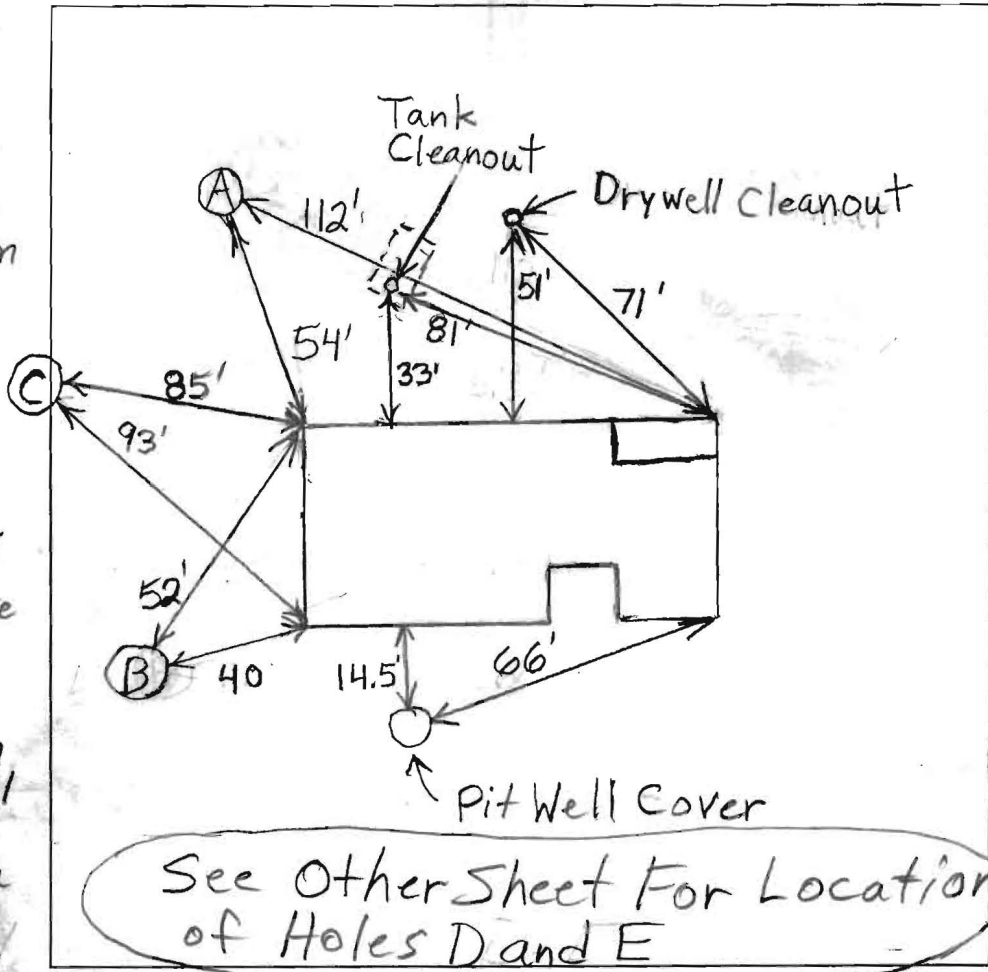 Tank
Cleanout
A
112'
Drywell Cleanout
51'
71'
81'
54'
33'
C
85'
93'
52'
B
40
14.5'
66'
Pit Well Cover
See Other Sheet For Location
of Holes D and E